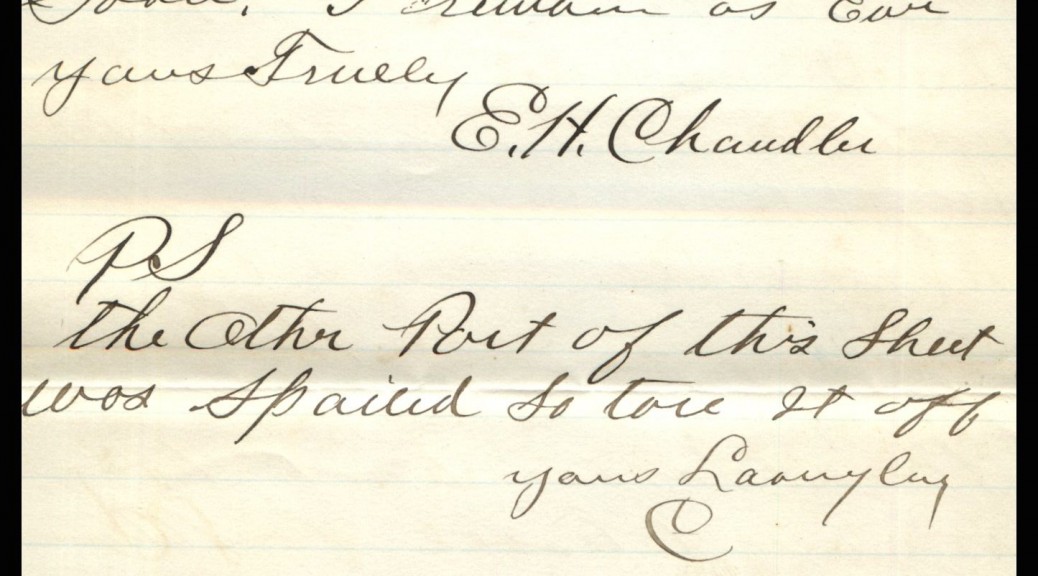 I remain as Ever
yours Truely
E. H. Chandler
P S
the Other Part of this Sheet
was Spoiled So tore It off
yours
C